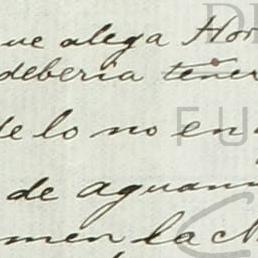 que alega Hor
deberia tener
de lo no en
de aguan
men la